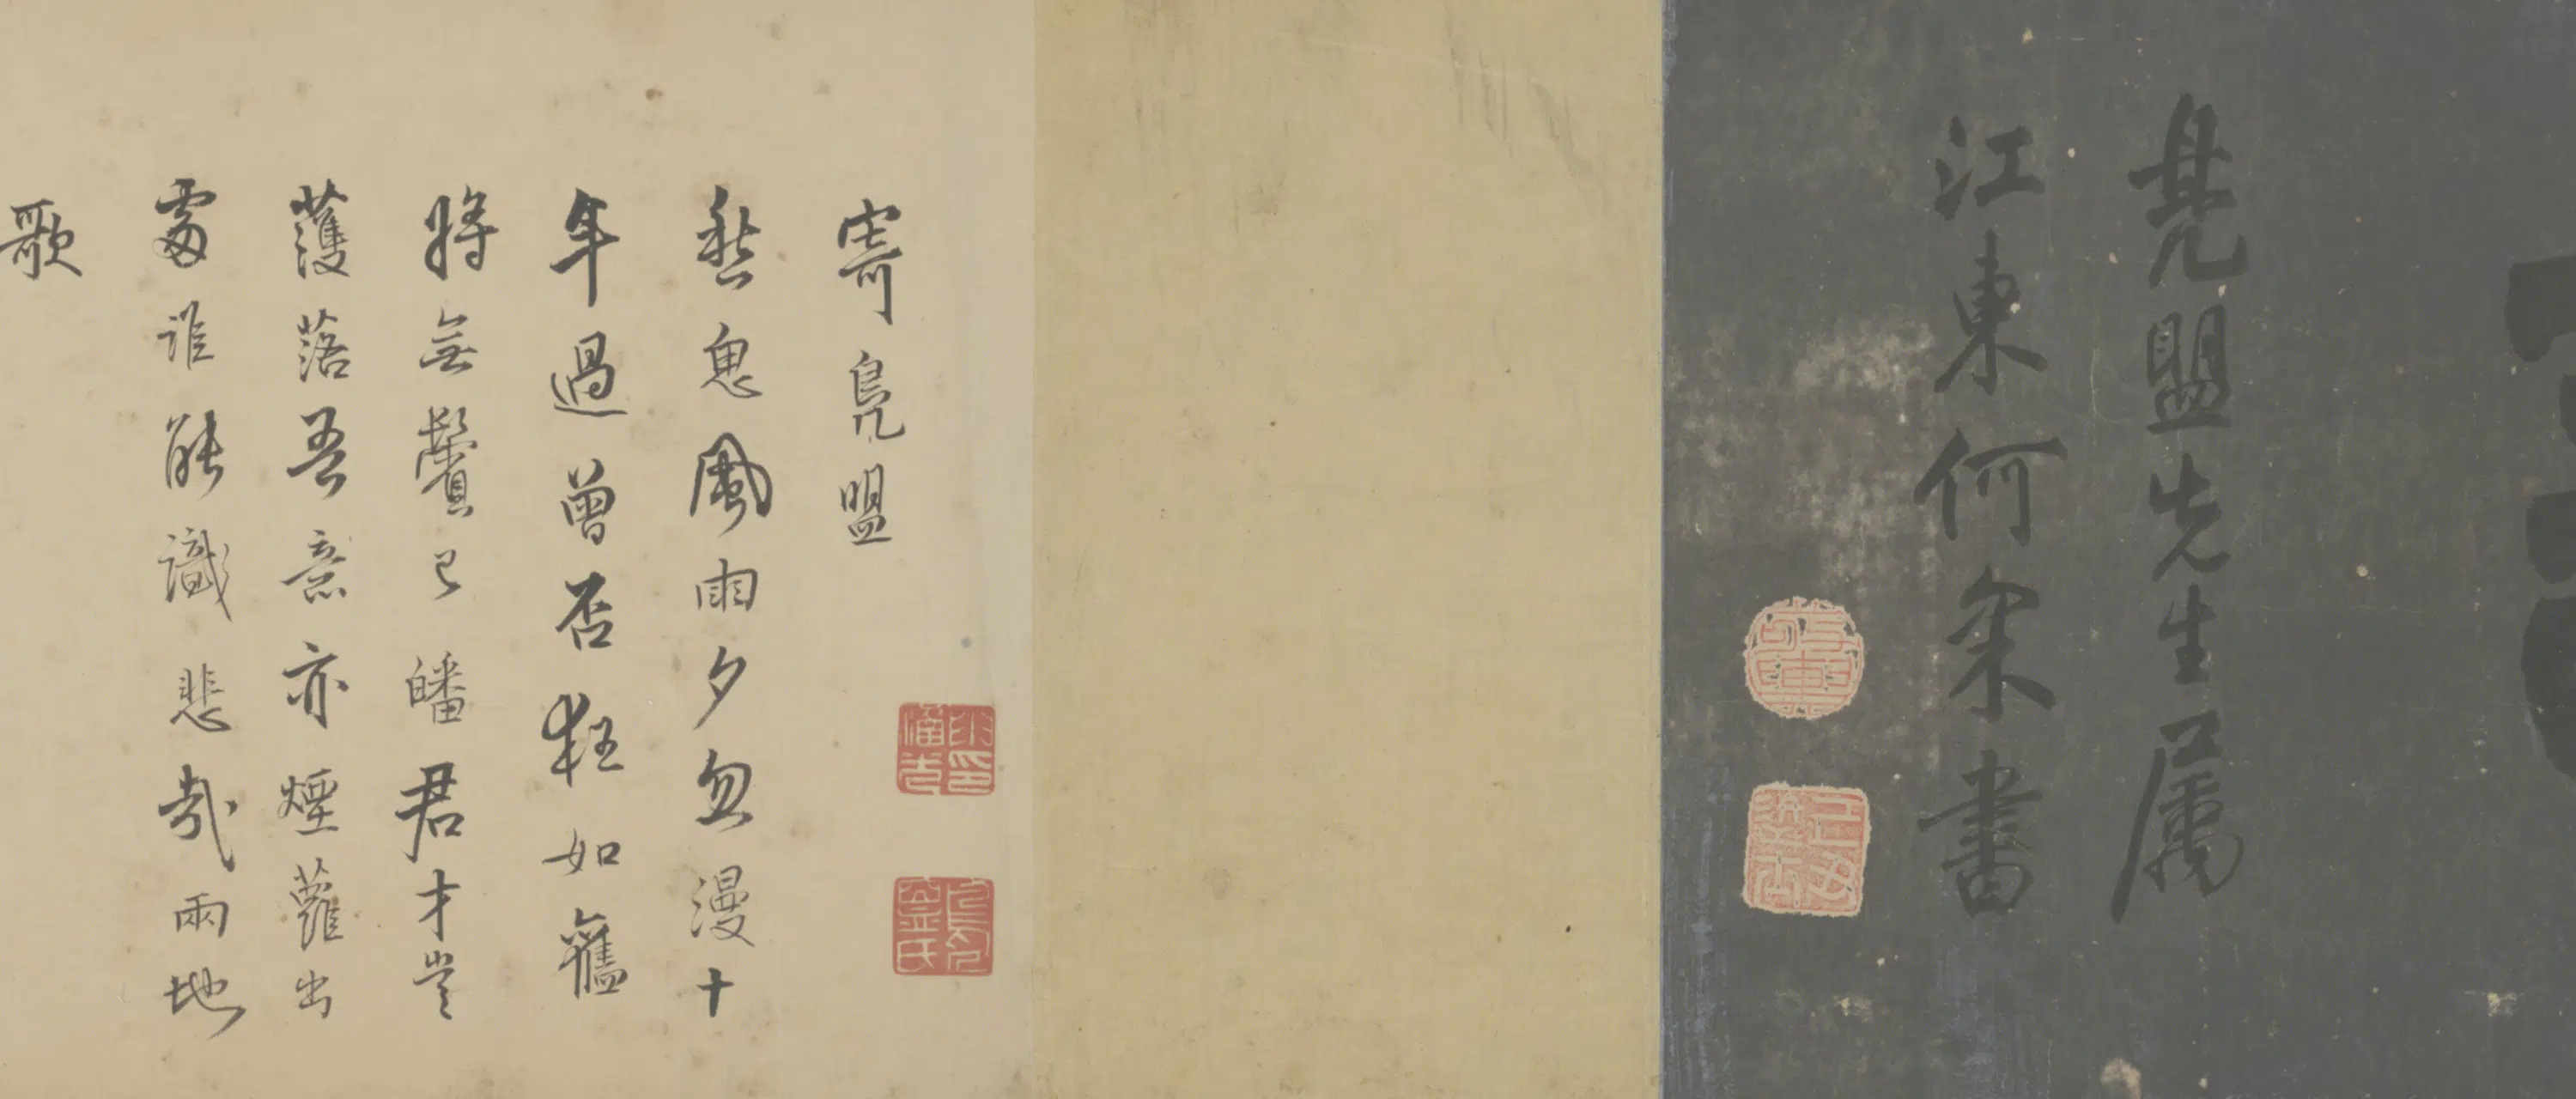 鳧盟先生屬
江東何采書
寄鳧盟
愁恖風雨夕忽漫十
年過曾否狂如舊
將無鬢已皤君才豈
濩落吾意亦煙蘿出
處誰能識悲哉兩地
歌